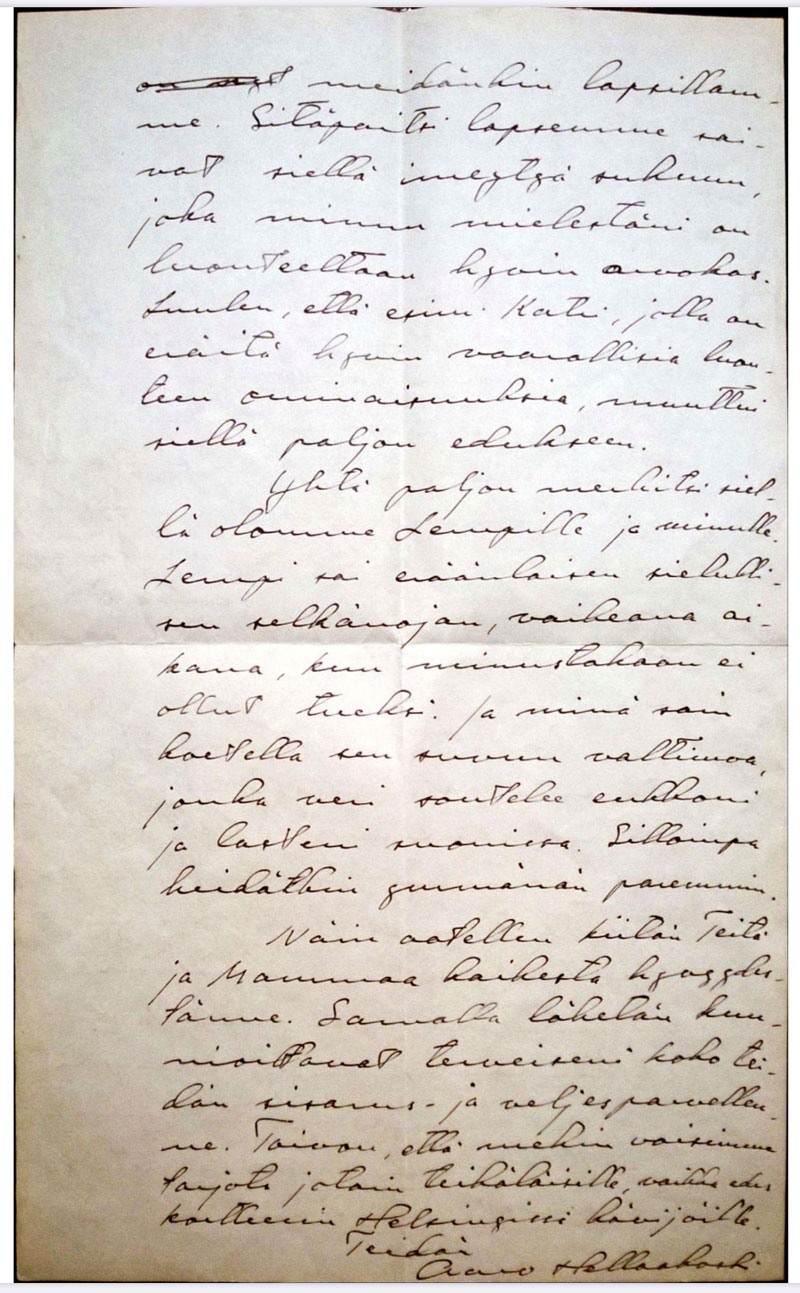 meidänkin lapsillam-
me. Sitäpaitsi lapsemme sai-
vat siellä imeytyä sukuun,
joka minun mielestäni on
luonteeltaan hyvin arvokas.
Luulen, että esim. Kati, jolla on
eräitä hyvin vaarallisia luon-
teen ominaisuuksia, muuttui
siellä paljon edukseen.
Yhtä paljon merkitsi siel-
lä olomme Lempille ja minulle.
Lempi sai eräänlaisen sielulli-
sen selkänojan, vaikeana ai-
kana, kun minustakaan ei
ollut tueksi. Ja minä sain
koetella sen suvun valtimoa,
jonka veri soutelee eukkoni
ja lasteni suonissa. Silloinpa
heidätkin ymmärrän paremmin.
Näin aatellen kiitän Teitä
ja Mammaa kaikesta hyvyydes-
tänne. Samalla lähetän kun-
nioittavat terveiseni koko tei-
dän sisarus- ja veljesparvellen-
ne. Toivon, että mekin voisimme
tarjota jotain teikäläisille, vaikka edes
kortteerin Helsingissä kävijöille.
Teidän
Aaro Hellaakoski